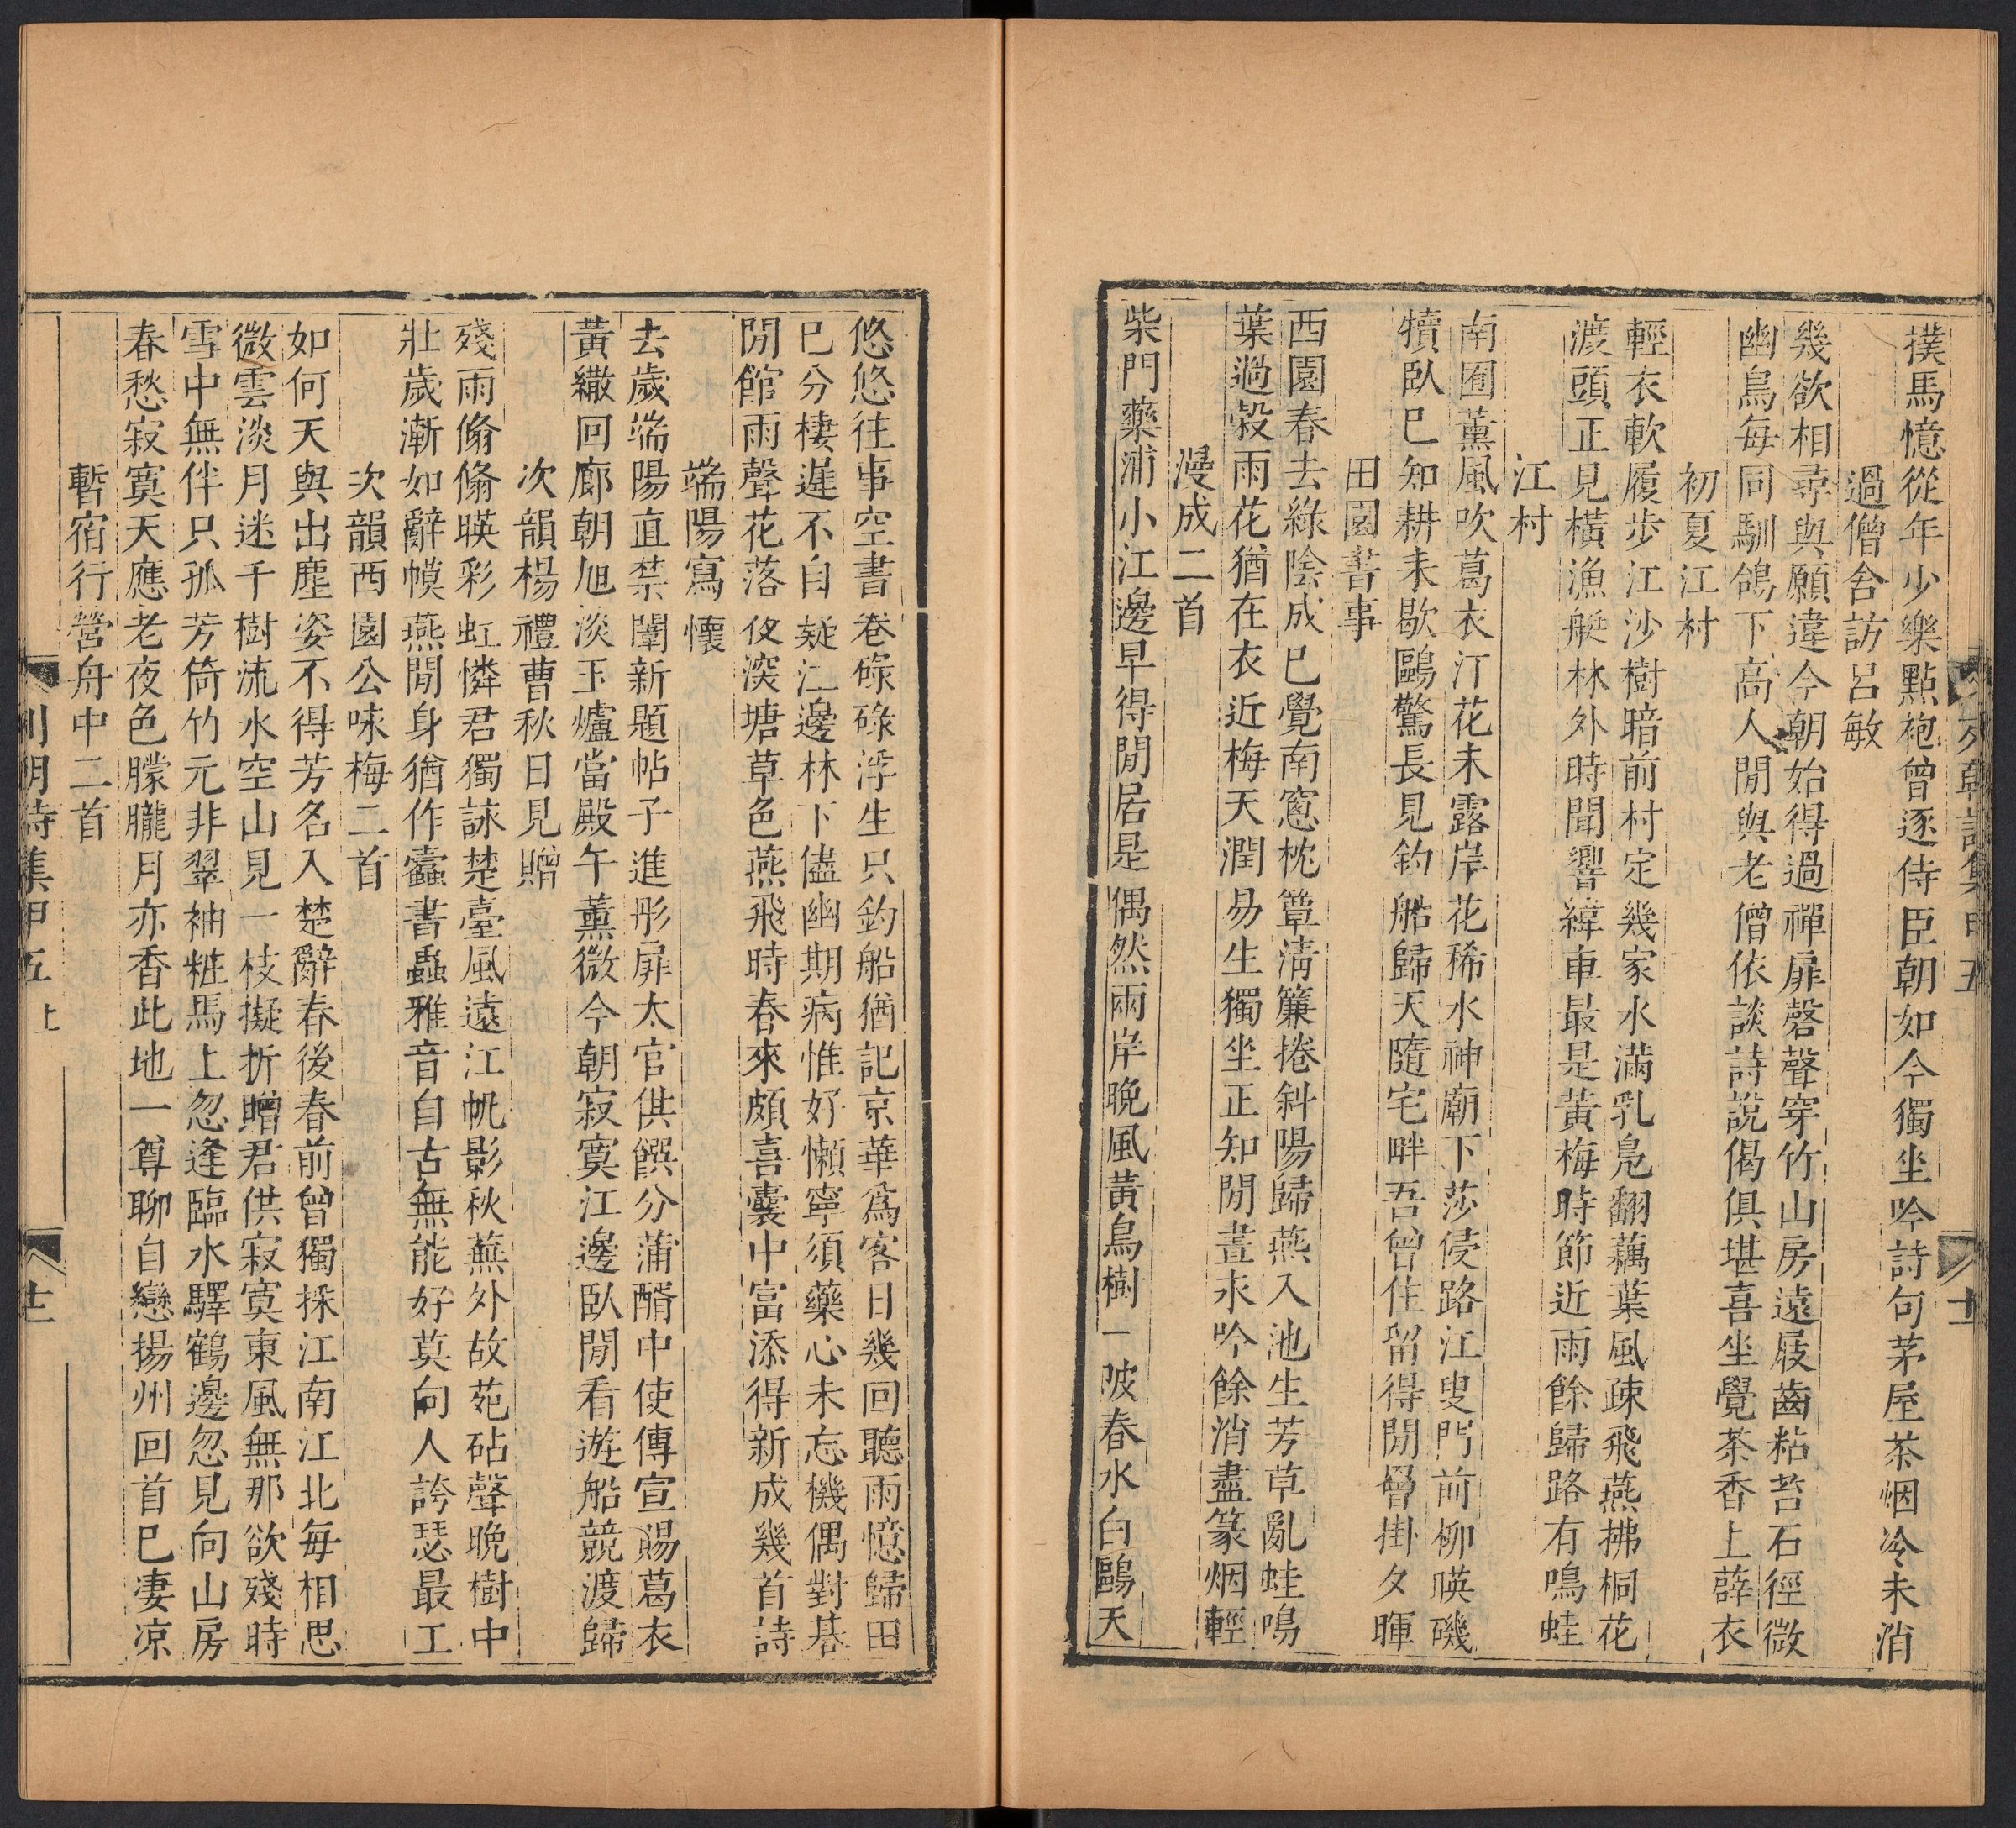 撲馬憶從年少樂點袍曾逐侍臣朝如今獨坐吟詩句茅屋茶烟冷未消
過僧舍訪呂敏
幾欲相尋與願違今朝始得過禪扉磬聲穿竹山房遠屐齒粘苔石徑微
幽鳥每同馴鴿下高人閒與老僧依談詩說偈俱堪喜坐覺茶香上薜衣
初夏江村
輕衣軟履步江沙樹暗前村定幾家水滿乳鳧翻藕葉風疎飛燕拂桐花
渡頭正見橫漁艇林外時聞響緯車最是黃梅時節近雨餘歸路有鳴蛙
江村
南囿薰風吹葛衣汀花未露岸花稀水神廟下莎侵路江叟門前柳暎磯
犢臥巳知耕耒歇鷗驚長見釣船歸天隨宅畔吾曾住留得閒罾掛夕暉
田園書事
西園春去綠陰成巳覺南窻枕簟淸簾捲斜陽歸燕入池生芳草亂蛙鳴
葉過穀雨花猶在衣近梅天潤易生獨坐正知閒晝永吟餘消盡篆烟輕
漫成二首
柴門藥浦小江邊早得閒居是偶然兩岸晚風黃鳥樹一陂春水白鷗天
悠悠往事空書卷碌碌浮生只釣船猶記京華爲客日幾回聽雨憶歸田
巳分棲遲不自疑江邊林下儘幽期病惟好懶寧須藥心未忘機偶對棊
閒館雨聲花落夜深塘草色燕飛時春來頗喜囊中富添得新成幾首詩
端陽寫懷
去歲端陽直禁闈新題帖子進彤扉太官供饌分蒲醑中使傳宣賜葛衣
黃繖回廊朝旭淡玉爐當殿午薰微今朝寂寞江邊臥閒看遊船競渡歸
次韻楊禮曹秋日見贈
殘雨翛翛暎彩虹憐君獨詠楚臺風遠江帆影秋蕪外故苑砧聲晚樹中
壯歲漸如辭幙燕閒身猶作蠹書蟲雅音自古無能好莫向人誇瑟最工
次韻西園公咏梅二首
如何天與出塵姿不得芳名入楚辭春後春前曾獨採江南江北每相思
微雲淡月迷千樹流水空山見一枝擬折贈君供寂寞東風無那欲殘時
雪中無伴只孤芳倚竹元非翠袖粧馬上忽逢臨水驛鶴邊忽見向山房
春愁寂寞天應老夜色朦朧月亦香此地一尊聊自戀揚州回首巳凄凉
暫宿行營舟中二首
列朝詩集甲五上